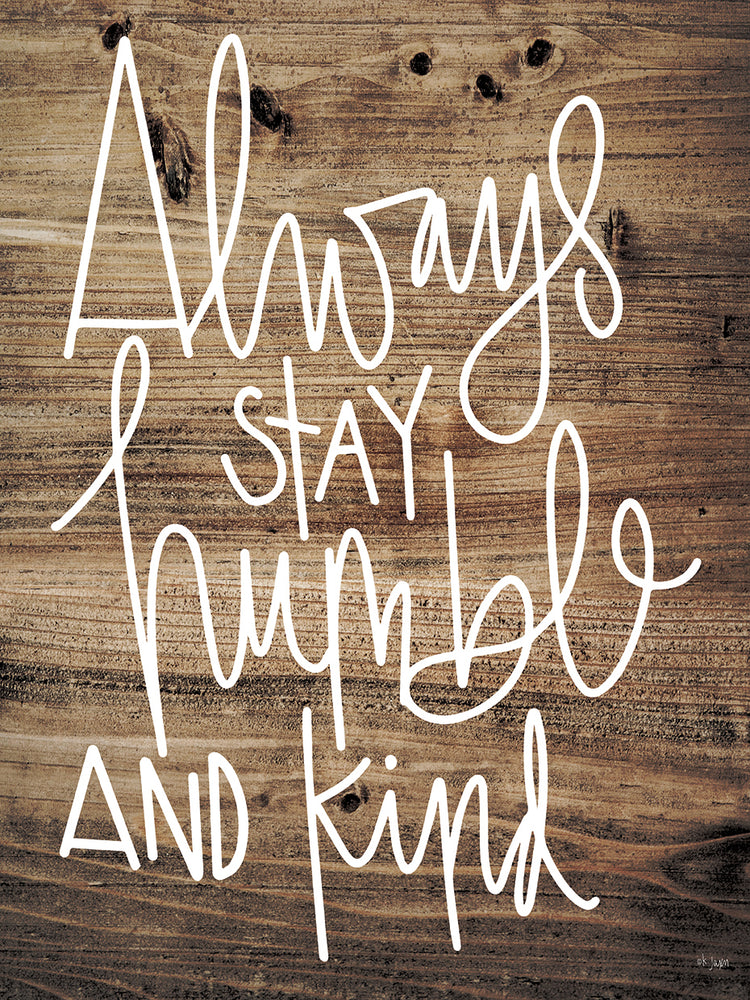 Always
STAY
humble
AND kind